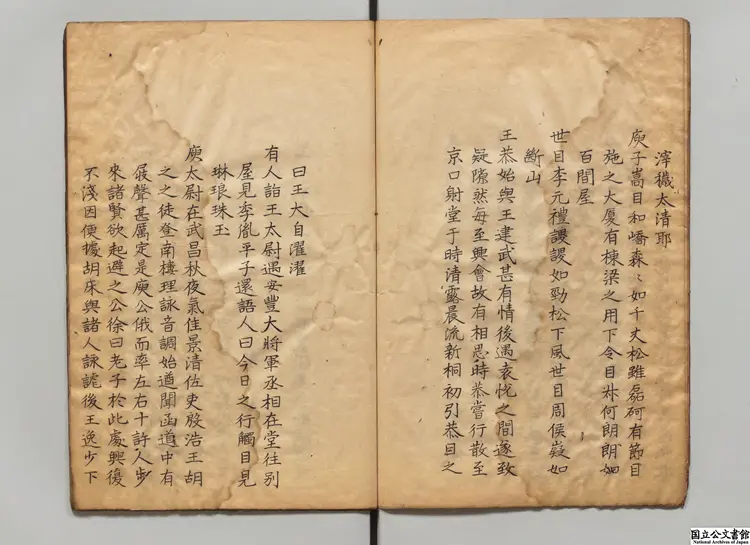 滓穢太清耶
庾子嵩目和嶠森〻如千丈松雖磊砢有節目
施之大厦有棟梁之用下令目叔何朗朗如
百間屋
世目李元禮謖謖如勁松下風世目周侯嶷如
斷山
王恭始與王建武甚有情後遇袁悅之間遂致
疑隙然每至興會故有相思時恭嘗行散至
京口射堂于時清露晨流新桐初引恭目之
曰王大自濯濯
有人詣王太尉遇安豐大將軍丞相在堂往別
屋見季胤平子還語人曰今日之行觸目見
琳琅珠玉
庾太尉在武昌秋夜氣佳景清佐吏殷浩王胡
之之徒登南樓理詠音調始遒聞函道中有
屐聲甚厲定是庾公俄而率左右十許人步
來諸賢欲起避之公徐曰老子於此處興復
不淺因便據胡床與諸人詠謔後王逸少下
国立公文書館
National Archives of Japan